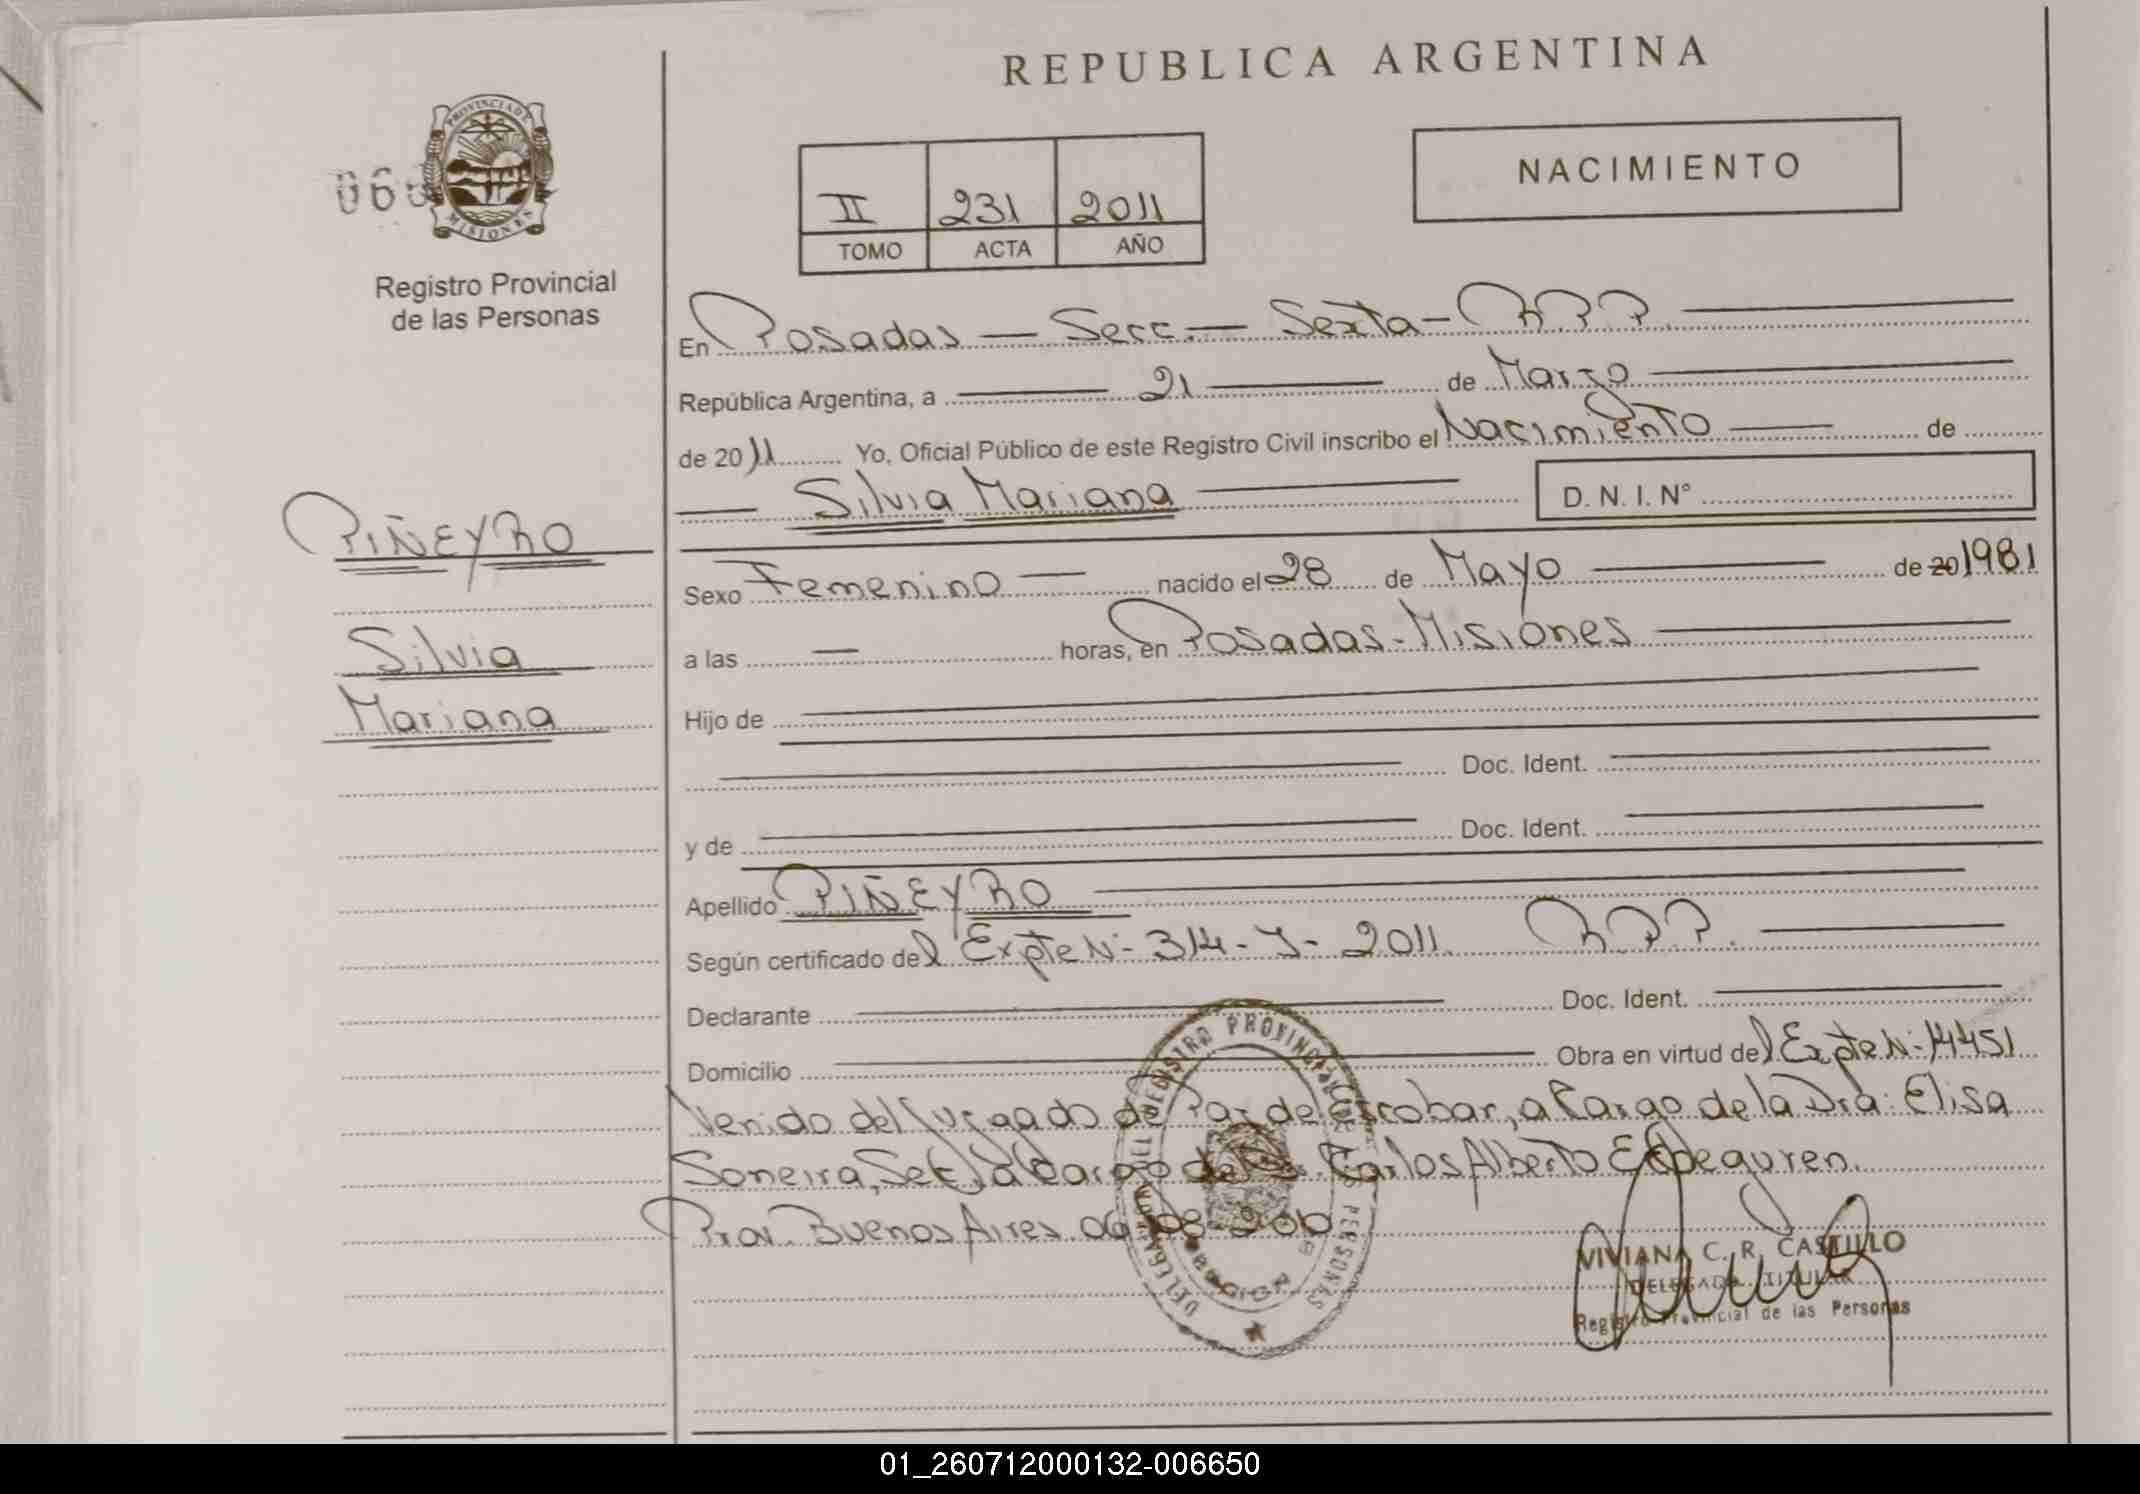 REPUBLICA ARGENTINA
PROVINCIA DE
MISIONES
Registro Provincial
de las Personas
II 231 2011
TOMO ACTA AÑO
NACIMIENTO
En Posadas — Secc. — Sexta - R.P.P.
República Argentina, a 21 de Marzo
de 2011 Yo, Oficial Público de este Registro Civil inscribo el Nacimiento de
Silvia Mariana D. N. I. N°
PIÑEYRO
Silvia
Mariana
Sexo Femenino nacido el 28 de Mayo de 20 1981
a las — horas, en Posadas - Misiones
Hijo de
Doc. Ident.
y de Doc. Ident.
Apellido PIÑEYRO
Según certificado del Expte N- 314 - - 2011. R.P.P.
Declarante Doc. Ident.
Domicilio Obra en virtud del Expte N- 14451
Venido del Juzgado de Paz de Escobar, a Cargo de la Dra. Elisa
Soneira, a Cargo Carlos Alberto
Prov. Buenos Aires 06
DELEGACION DEL REGISTRO PROVINCIAL DE LAS PERSONAS
VIVIANA C. R. CASTILLO
DELEGADA TITULAR
Registro Provincial de las Personas
01_260712000132-006650